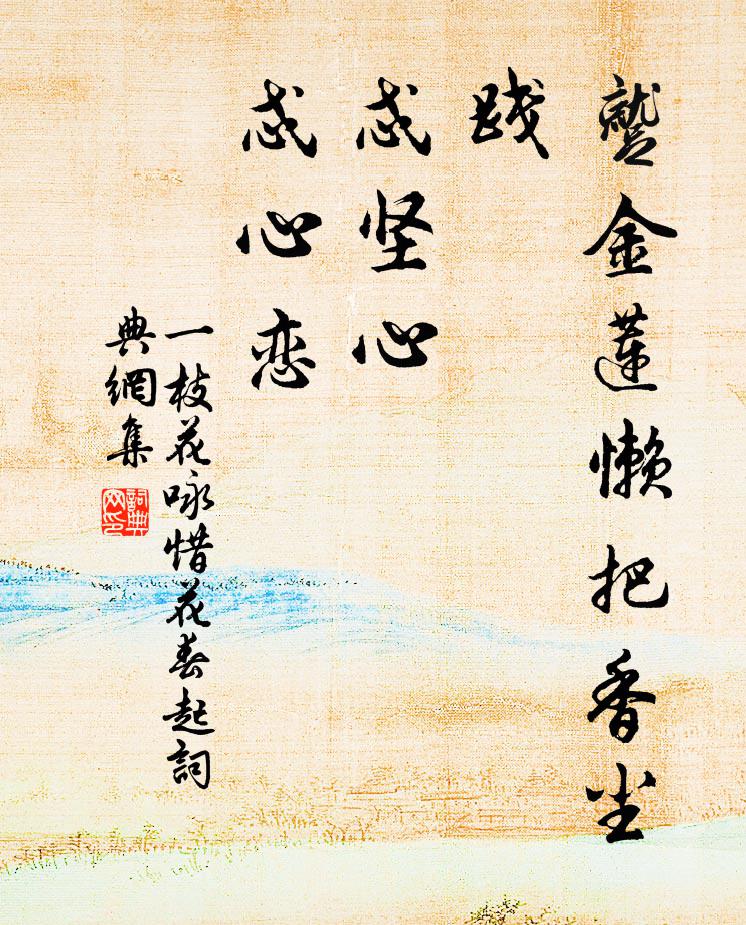 蹵金蓮懒把香尘
践
忒坚心
忒心恋
一枝花咏惜花春起詞
典網集
詞典
网印